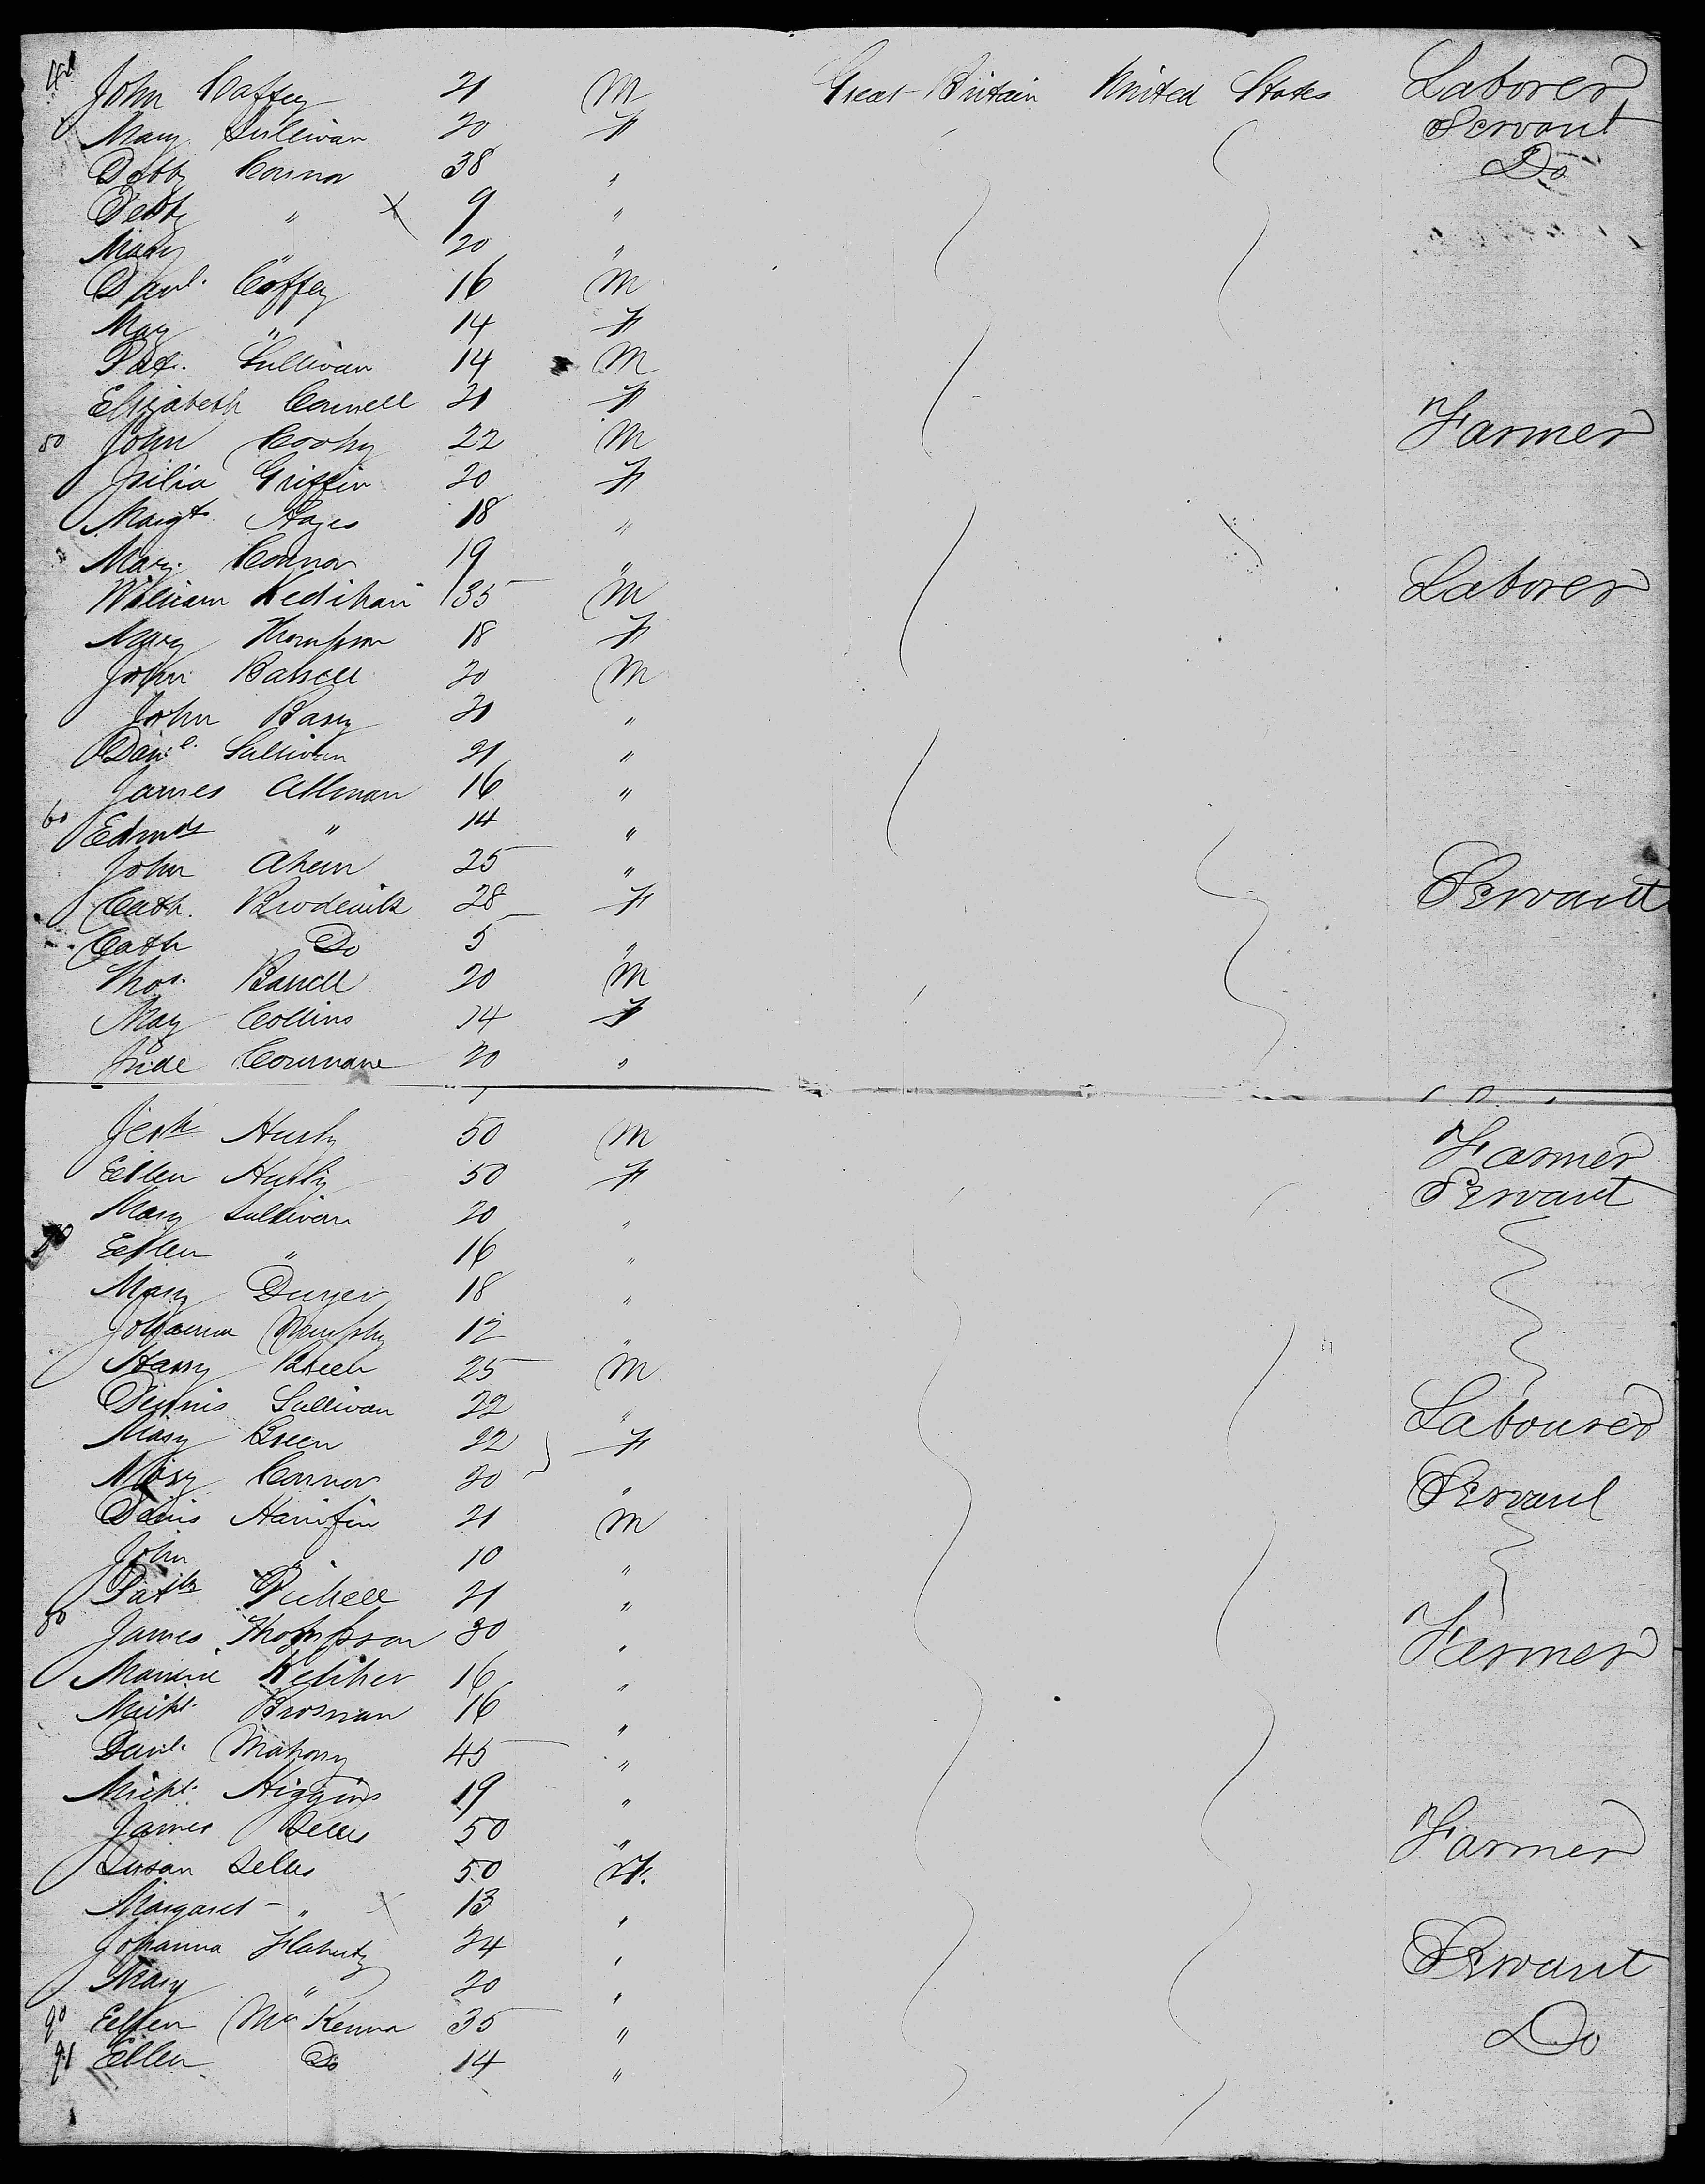 John Caffey 21 M Great Britain United States Laborer
Mary Sullivan 20 F Servant
Debby Connor 38 " Do
Debby " X 9 "
Mary " 20 "
Danl. Coffey 16 M
May " 14 F
Pat. Sullivan 14 M
Elizabeth Connell 21 F
50 John Cooky 22 M Farmer
Julia Griffin 20 F
Margt. Hayes 18 "
Mary Connor 19 "
William Kedihan 35 M Laborer
Mary Thompson 18 F
John Barrell 20 M
John Barry 21 "
Danl. Sullivan 21 "
James Allman 16 "
60 Edmd " 14 "
John Ahern 25 "
Cath. Broderick 28 F Servant
Cath Do 5 "
Thos. Barrell 20 M
May Collins 14 F
Jude Cournane 20 "
Husly 50 M Farmer
Ellen Husly 50 F Servant
Mary Sullivan 20 "
70 Ellen " 16 "
Mary Dwyer 18 "
Johanna Murphy 12 "
Harry Breen 25 M
Dennis Sullivan 22 " Labourer
Mary Breen 22 F
Mary Connor 20 " Servant
Denis Hanifin 21 M
John " 10 "
Patk 21 "
80 James Thompson 30 " Farmer
Keliher 16 "
Michl. Brosnan 16 "
Danl. Mahony 45 "
Michl. Higgins 19 "
James Selles 50 " Farmer
Susan Selles 50 F.
Margaret - " X 13 "
Johanna Flaherty 24 " Servant
Mary " 20 "
90 Ellen Mc Kenna 35 " Do
91 Ellen Do 14 "